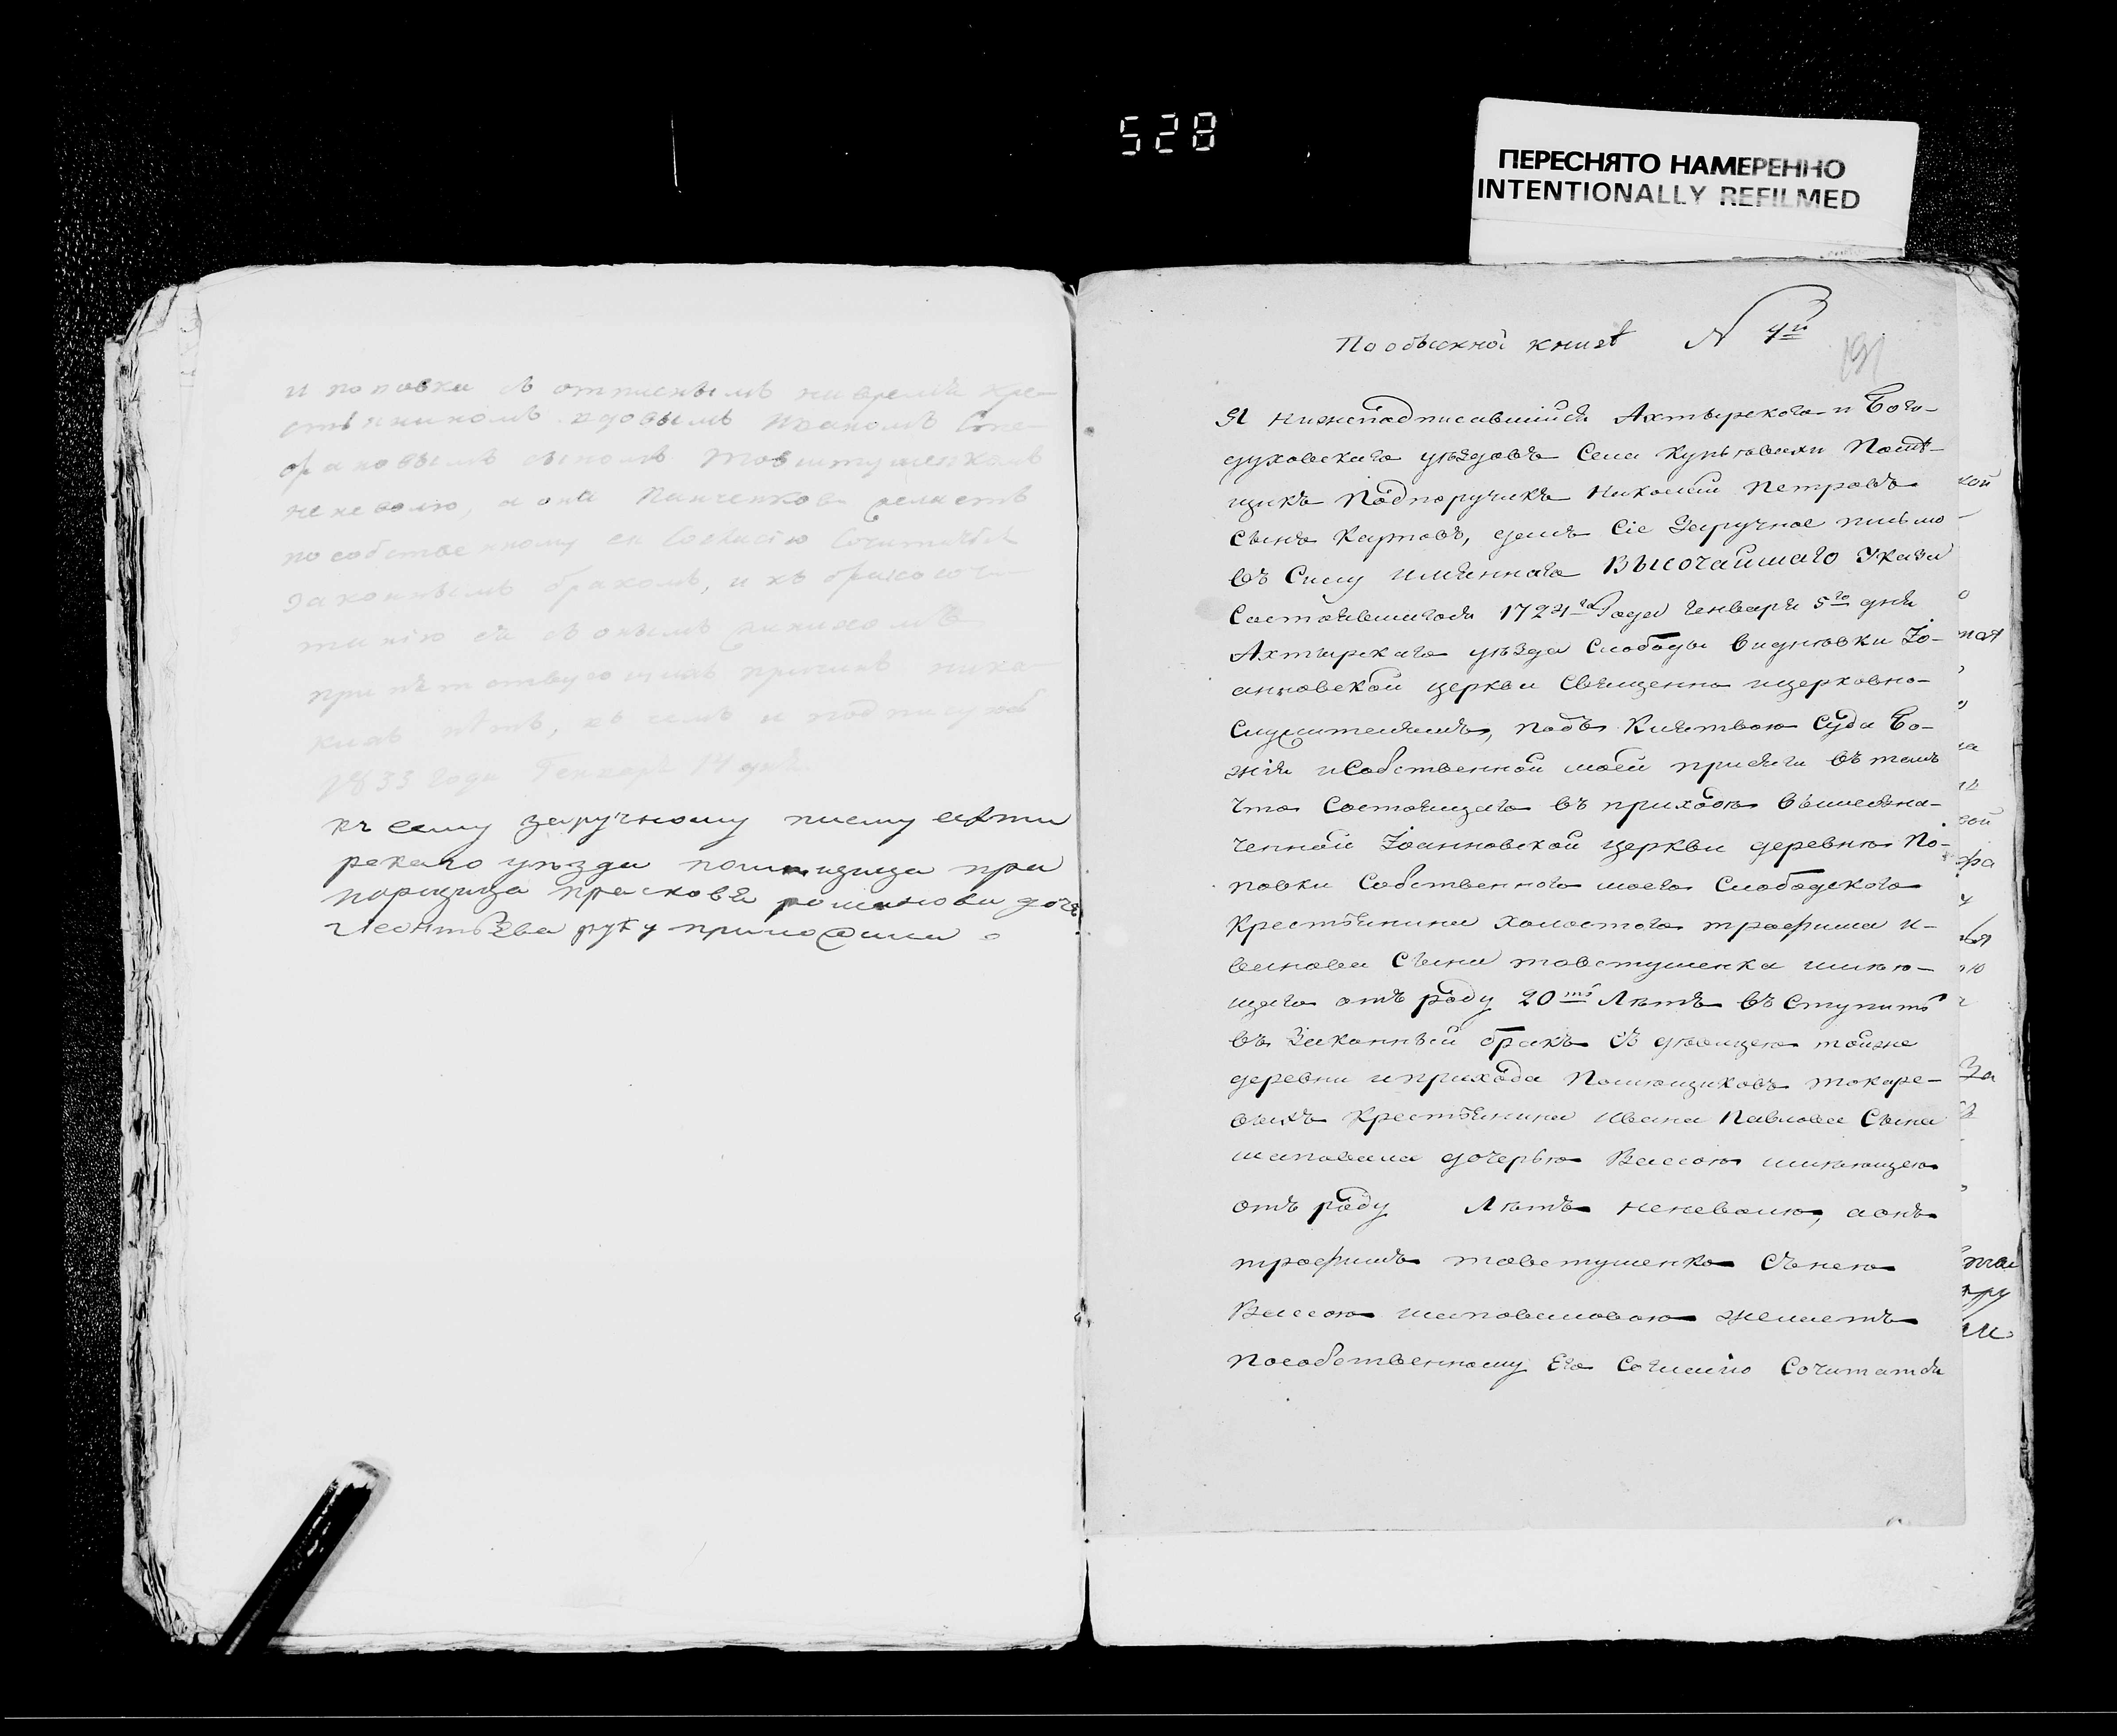 528
ПЕРЕСНЯТО НАМЕРЕННО
INTENTIONALLY REFILMED
и поповки съ отпискнымъ на время кре-
стьяниномъ вдовымъ Иваномъ Сте-
фановымъ сыномъ Товстушенкомъ
не неволю, а она Панченкова желаетъ
по собственному ея Согласію Сочитатся
законнымъ бракомъ, и къ бракосоче-
танію ея съ онымъ женихомъ
припятствующихъ причинъ ника-
кихъ нѣтъ, въ чемъ и подписуюсь
1833 года Генваря 14 дня
къ сему заручному писму ахти
рскаго уѣзда помищица пра
порщица прасковя романова дочь
Леонтьева руку приложила
По обыскной книгѣ N 4й
191
Я нижеподписавшійся Ахтырскаго и Бого-
духовскаго уѣздовъ Села Купьевахи Помѣ-
щикъ Подпоручикъ Николай Петровъ
Сынъ Карповъ, далъ Сіе Заручное письмо
въ Силу имяннаго ВЫсочайшаго Указа
Состоявшагося 1724го Года Генваря 5го дня
Ахтырскаго уѣзда Слободы Видновки Іо-
анновской церкви Священно ицерковно-
Служителямъ, подъ Клятвою Суда Бо-
жія иСобственной моей присяги въ томъ
что Состоящаго въ приходѣ вышезна-
ченной Іоанновской церкви деревнѣ По-
повки Собственного моего Слободского
Крестьянина холостого трофима и-
ванова Сына товстушенка имѣю-
щаго отъ роду 20ть Лѣтъ въ Ступить
въ Законный бракъ Съ дѣвицею тойже
деревни иприхода Помѣщиковъ токаре-
выхъ Крестьянина Ивана Павлова Сына
шаповала дочерью Вассою имѣющею
отъ роду Лѣтъ неневолю, аонъ
трофимъ товстушенко Сънею
Вассою шаповаловою желаетъ
пособственному Его Согласію Сочитатся